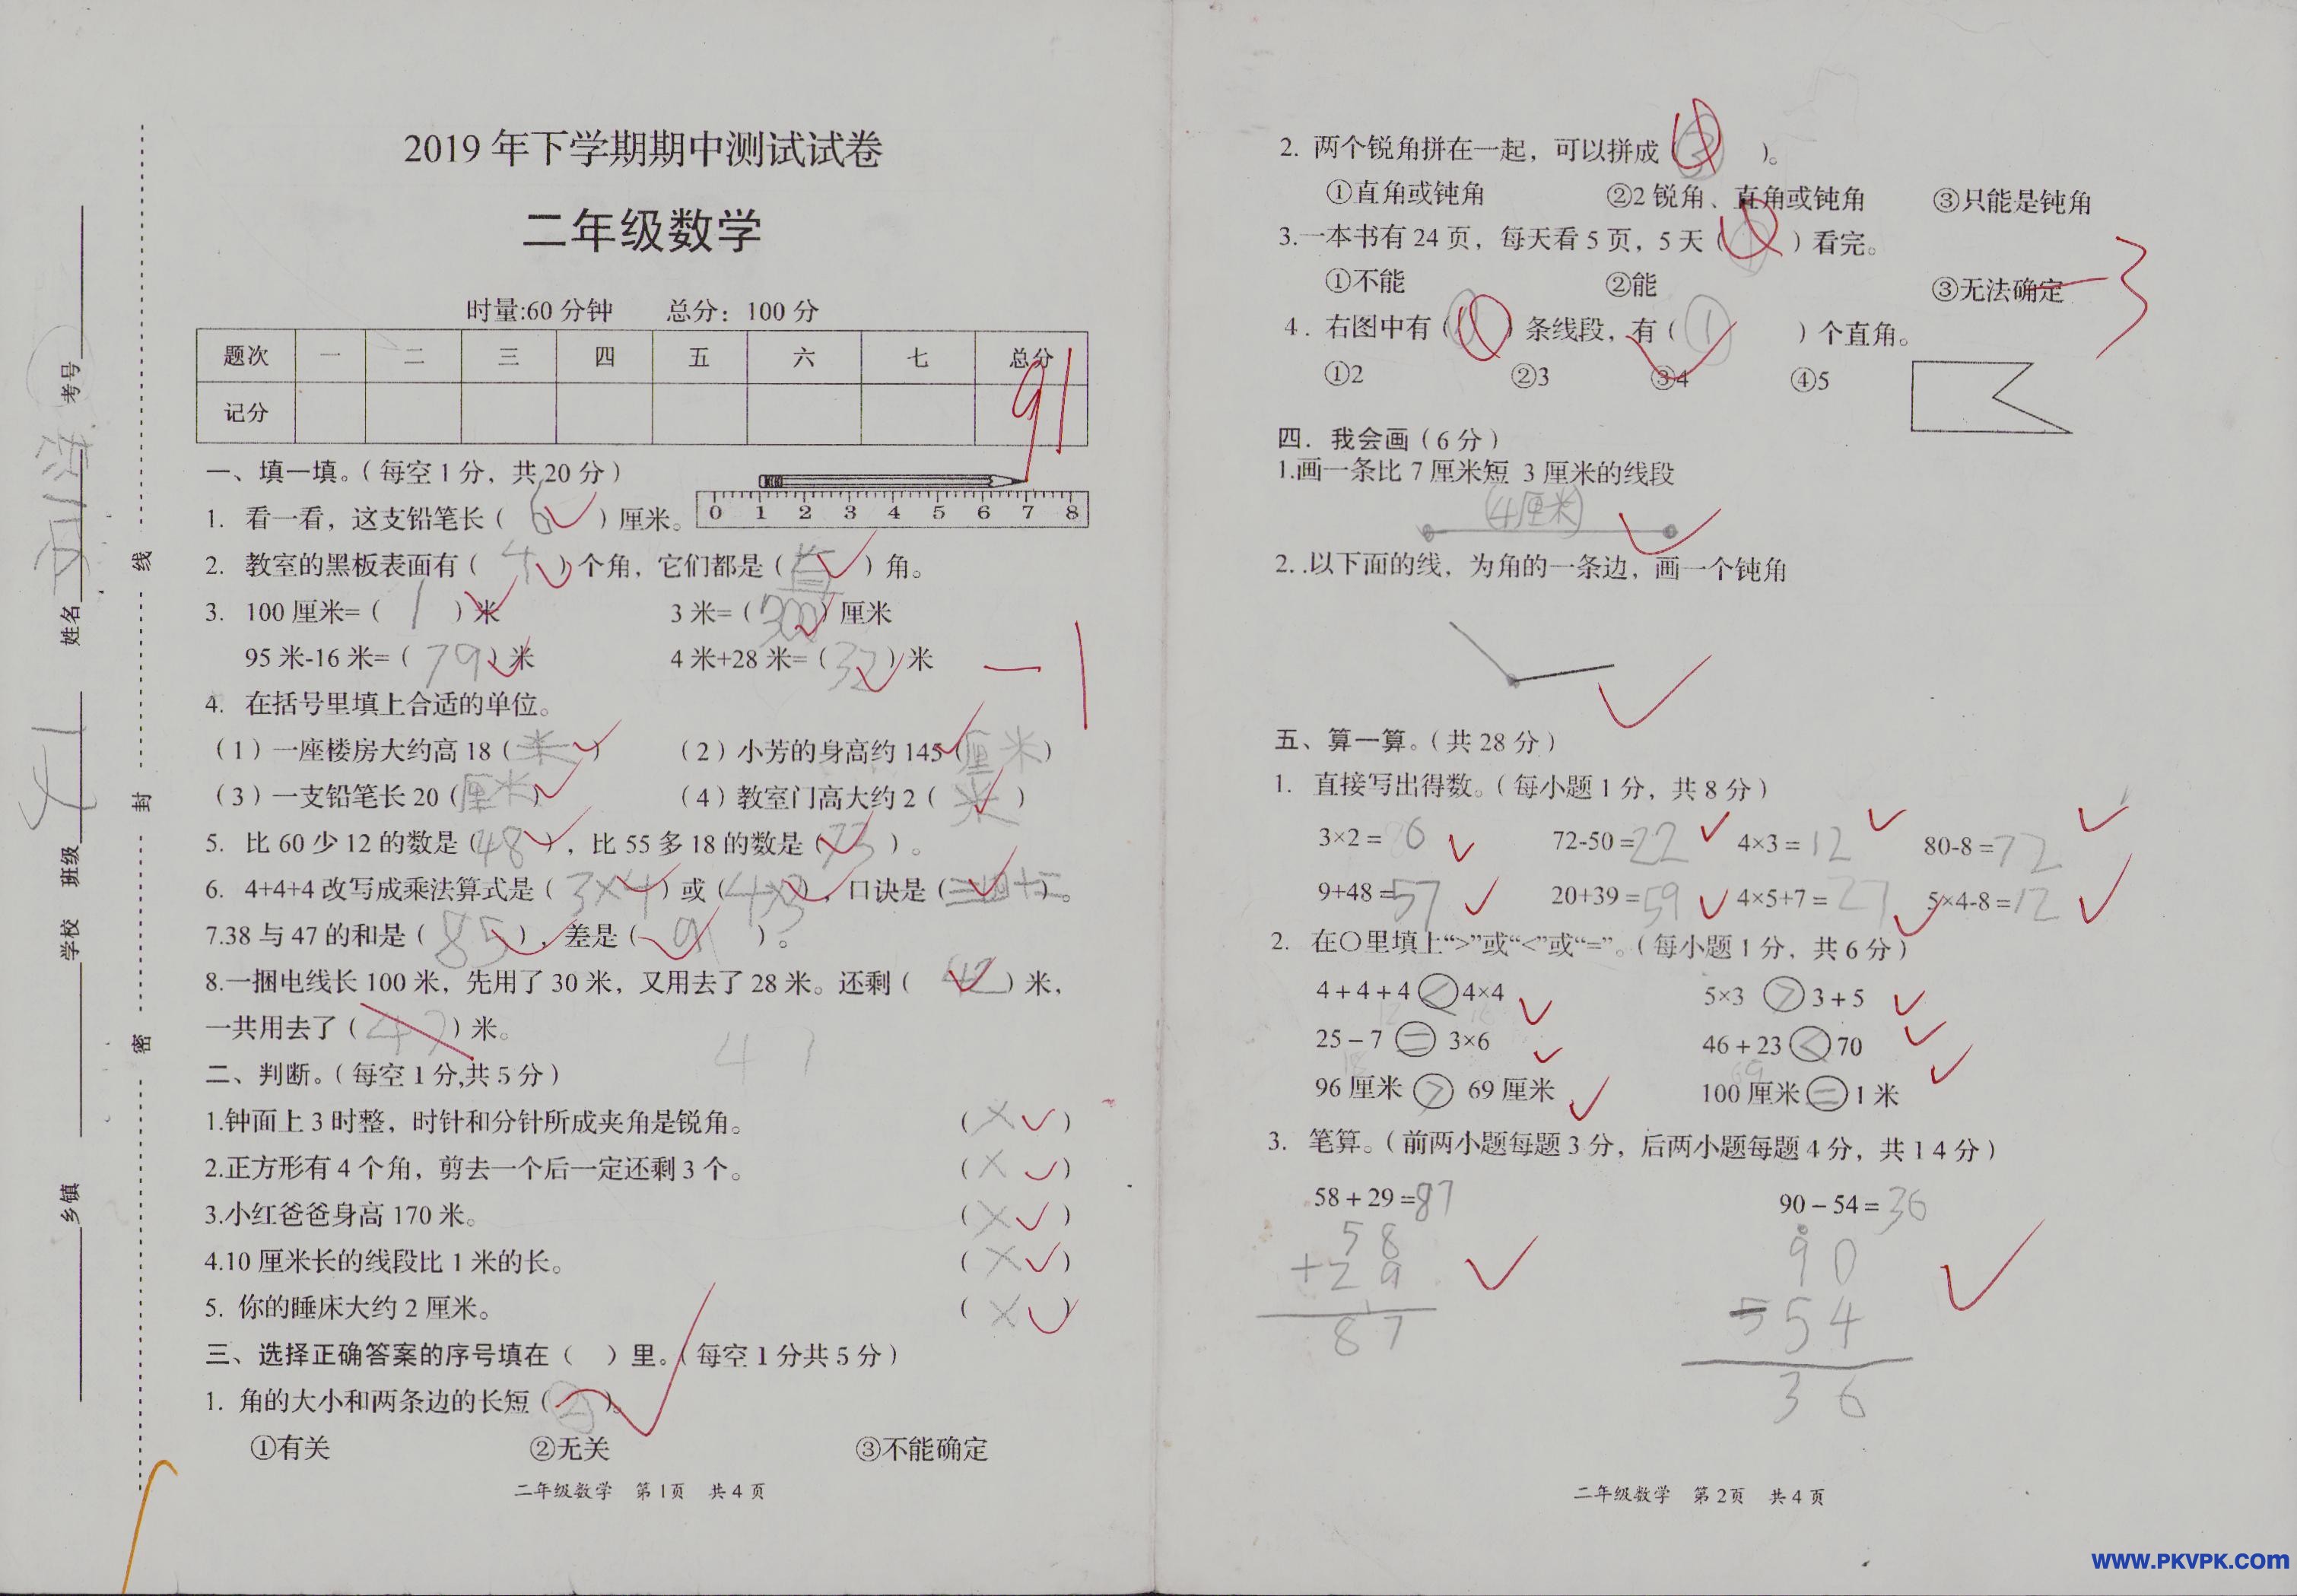 2019 年下学期期中测试试卷
二年级数学
时量:60 分钟 总分：100 分
题次 一 二 三 四 五 六 七 总分
记分 91
一、填一填。（每空 1 分，共 20 分）
0 1 2 3 4 5 6 7 8
1. 看一看，这支铅笔长（ 6 ）厘米。
2. 教室的黑板表面有（ 4 ）个角，它们都是（ 直 ）角。
3. 100 厘米=（ 1 ）米 3 米=（ 300 ）厘米
95 米-16 米=（ 79 ）米 4 米+28 米=（ 32 ）米
-1
4. 在括号里填上合适的单位。
（1）一座楼房大约高 18（ 米 ） （2）小芳的身高约 145（厘米）
（3）一支铅笔长 20（厘米） （4）教室门高大约 2（ 米 ）
5. 比 60 少 12 的数是（48），比 55 多 18 的数是（73）。
6. 4+4+4 改写成乘法算式是（ 3×4 ）或（ 4×3 ），口诀是（三四十二）。
7.38 与 47 的和是（ 85 ），差是（ 9 ）。
8.一捆电线长 100 米，先用了 30 米，又用去了 28 米。还剩（ 42 ）米，
一共用去了（ ）米。
二、判断。（每空 1 分,共 5 分）
1.钟面上 3 时整，时针和分针所成夹角是锐角。 （ × ）
2.正方形有 4 个角，剪去一个后一定还剩 3 个。 （ × ）
3.小红爸爸身高 170 米。 （ × ）
4.10 厘米长的线段比 1 米的长。 （ × ）
5. 你的睡床大约 2 厘米。 （ × ）
三、选择正确答案的序号填在（ ）里。（每空 1 分共 5 分）
1. 角的大小和两条边的长短（ ② ）。
①有关 ②无关 ③不能确定
二年级数学 第 1页 共 4 页
考号
姓名
班级
学校
乡镇
线
封
密
2. 两个锐角拼在一起，可以拼成（ ③ ）。
①直角或钝角 ②2 锐角、直角或钝角 ③只能是钝角
3.一本书有 24 页，每天看 5 页，5 天（ ① ）看完。
①不能 ②能 ③无法确定
-3
4. 右图中有（ ）条线段，有（ ① ）个直角。
①2 ②3 ③4 ④5
四．我会画（6 分）
1.画一条比 7 厘米短 3 厘米的线段
(4厘米)
2. .以下面的线，为角的一条边，画一个钝角
五、算一算。（共 28 分）
1. 直接写出得数。（每小题 1 分，共 8 分）
3×2 = 6 72-50 =22 4×3 = 12 80-8 =72
9+48 =57 20+39 =59 4×5+7 = 27 5×4-8 =12
2. 在○里填上“>”或“<”或“=”。（每小题 1 分，共 6 分）
4 + 4 + 4 < 4×4 5×3 > 3 + 5
25 – 7 = 3×6 46 + 23 < 70
96 厘米 > 69 厘米 100 厘米 = 1 米
3. 笔算。（前两小题每题 3 分，后两小题每题 4 分，共 1 4 分）
58 + 29 =87 90 – 54 = 36
58 90
+29 -54
87 36
二年级数学 第 2页 共 4 页
www.PKVPK.com